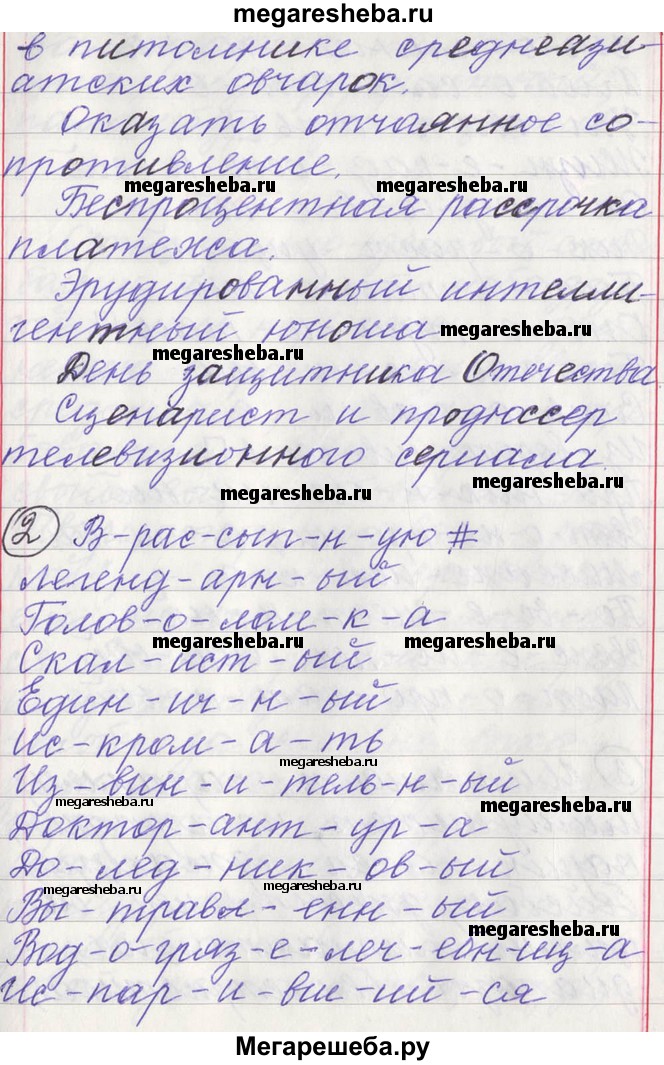 megaresheba.ru
в питомнике среднеази-
атских овчарок.
Оказать отчаянное со-
противление.
megaresheba.ru megaresheba.ru
Беспроцентная рассрочка
платежа.
Эрудированный интелли-
гентный юноша
megaresheba.ru
megaresheba.ru
День защитника Отечества.
Сценарист и продюссер
телевизионного сериала.
megaresheba.ru
2 В-рас-сып-н-ую #
легенд-арн-ый
Голов-о-лом-к-а
megaresheba.ru megaresheba.ru
Скал-ист-ый
Един-ич-н-ый
ис-кром-а-ть
megaresheba.ru
Из-вин-и-тель-н-ый
megaresheba.ru megaresheba.ru
Доктор-ант-ур-а
До-лед-ник-ов-ый
megaresheba.ru megaresheba.ru
Вы-травл-енн-ый
megaresheba.ru
Вод-о-гряз-е-леч-ебн-иц-а
megaresheba.ru
Ис-пар-и-вш-ий-ся
Мегарешеба.ру